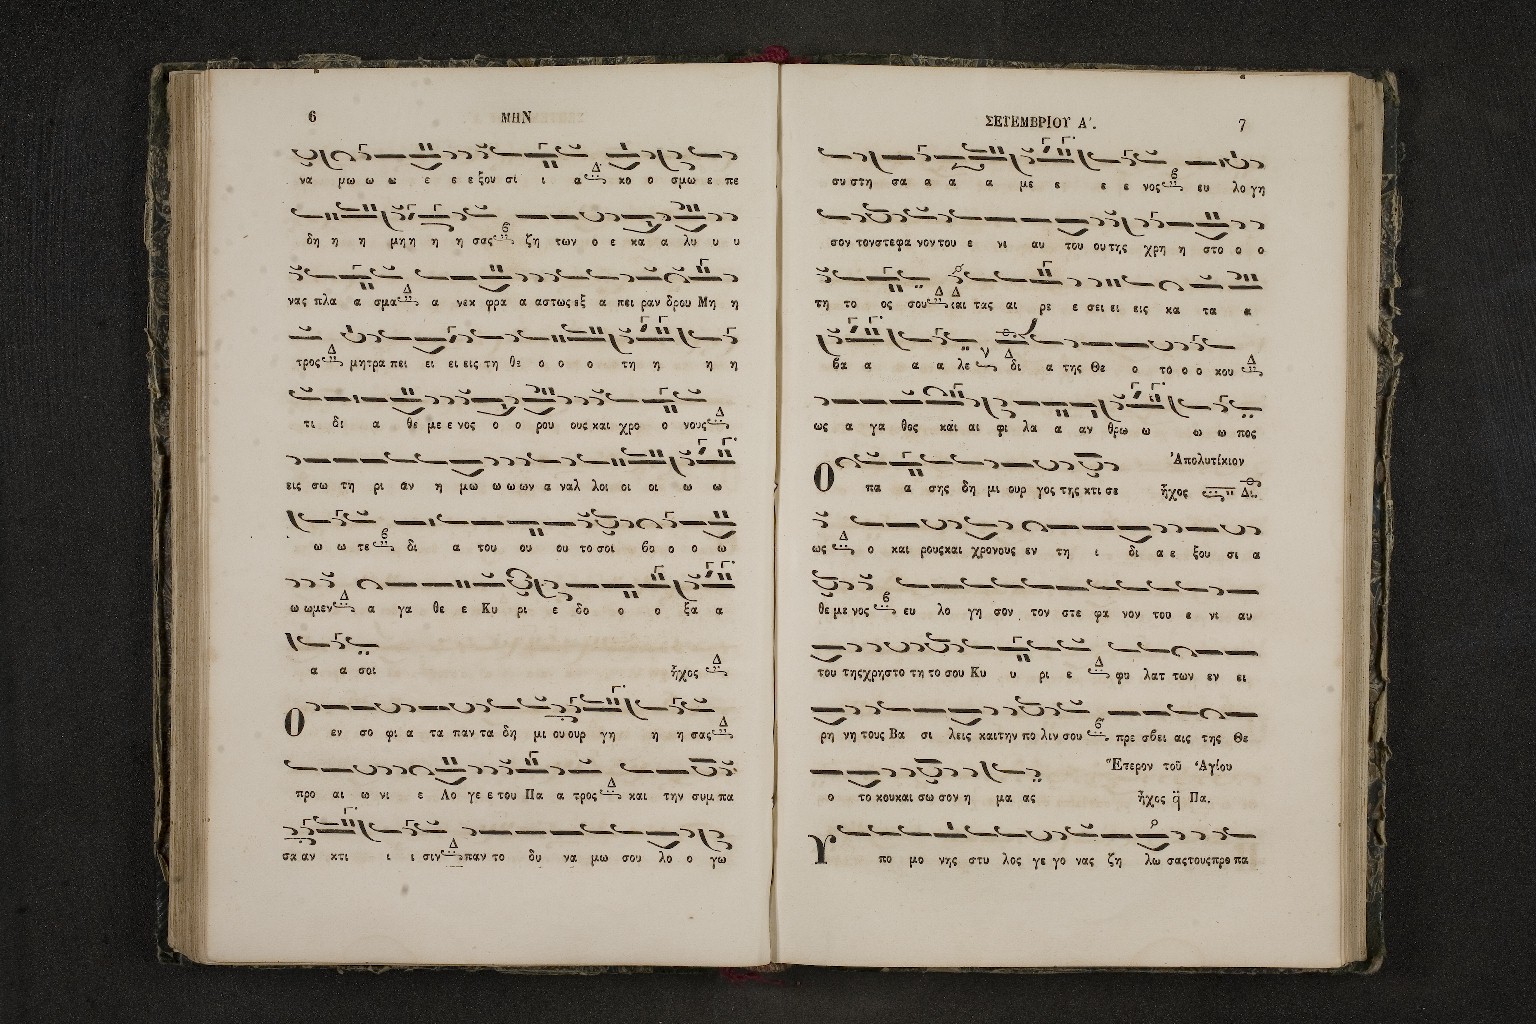 6
ΜΗΝ
να μω ω ω ε ε ε ξου σι ι α κο ο σμω ε πε
δη η η μη η η η σας ζη των ο ε κα α λυ υ υ
νας πλα α σμα α νεκ φρα α αστως εξ α πει ραν δρου Μη η
τρος μητρα πει ει ει ει εις τη θε ο ο ο τη η η η
τι δι α θε με ε νος ο ο ρου ους και χρο ο νους
εις σω τη ρι αν η μω ω ω ων α ναλ λοι οι οι ω ω
ω ω τε δι α του ου ου το σοι βο ο ο ω
ω ωμεν α γα θε ε Κυ ρι ε δο ο ο ξα α
α α σοι ἦχος
Ο εν σο φι α τα παν τα δη μι ου ουρ γη η η σας
προ αι ω νι ε Λο γε ε του Πα α τρος και την συμ πα
σα αν κτι ι ι σιν παν το δυ να μω σου λο ο γω
ΣΕΤΕΜΒΡΙΟΥ Α΄.
7
συ στη σα α α α με ε ε ε νος ευ λο γη
σον τον στεφα νον του ε νι αυ του ου της χρη η στο ο ο
τη το ος σου και τας αι ρε ε σει ει εις κα τα α
βα α α α λε δι α της Θε ο το ο ο κου
ως α γα θος και αι φι λα α αν θρω ω ω ω πος
Ἀπολυτίκιον
Ο πα α σης δη μι ουρ γος της κτι σε ἦχος Δι.
ως ο και ρους και χρονους εν τη ι δι α ε ξου σι α
θε με νος ευ λο γη σον τον στε φα νον του ε νι αυ
του της χρηστο τη το σου Κυ υ ρι ε φυ λατ των εν ει
ρη νη τους Βα σι λεις και την πο λιν σου πρε σβει αις της Θε
ο το κου και σω σον η μα ας
Ἕτερον τοῦ Ἁγίου
ἦχος Πα.
Υ πο μο νης στυ λος γε γο νας ζη λω σας τους προ πα